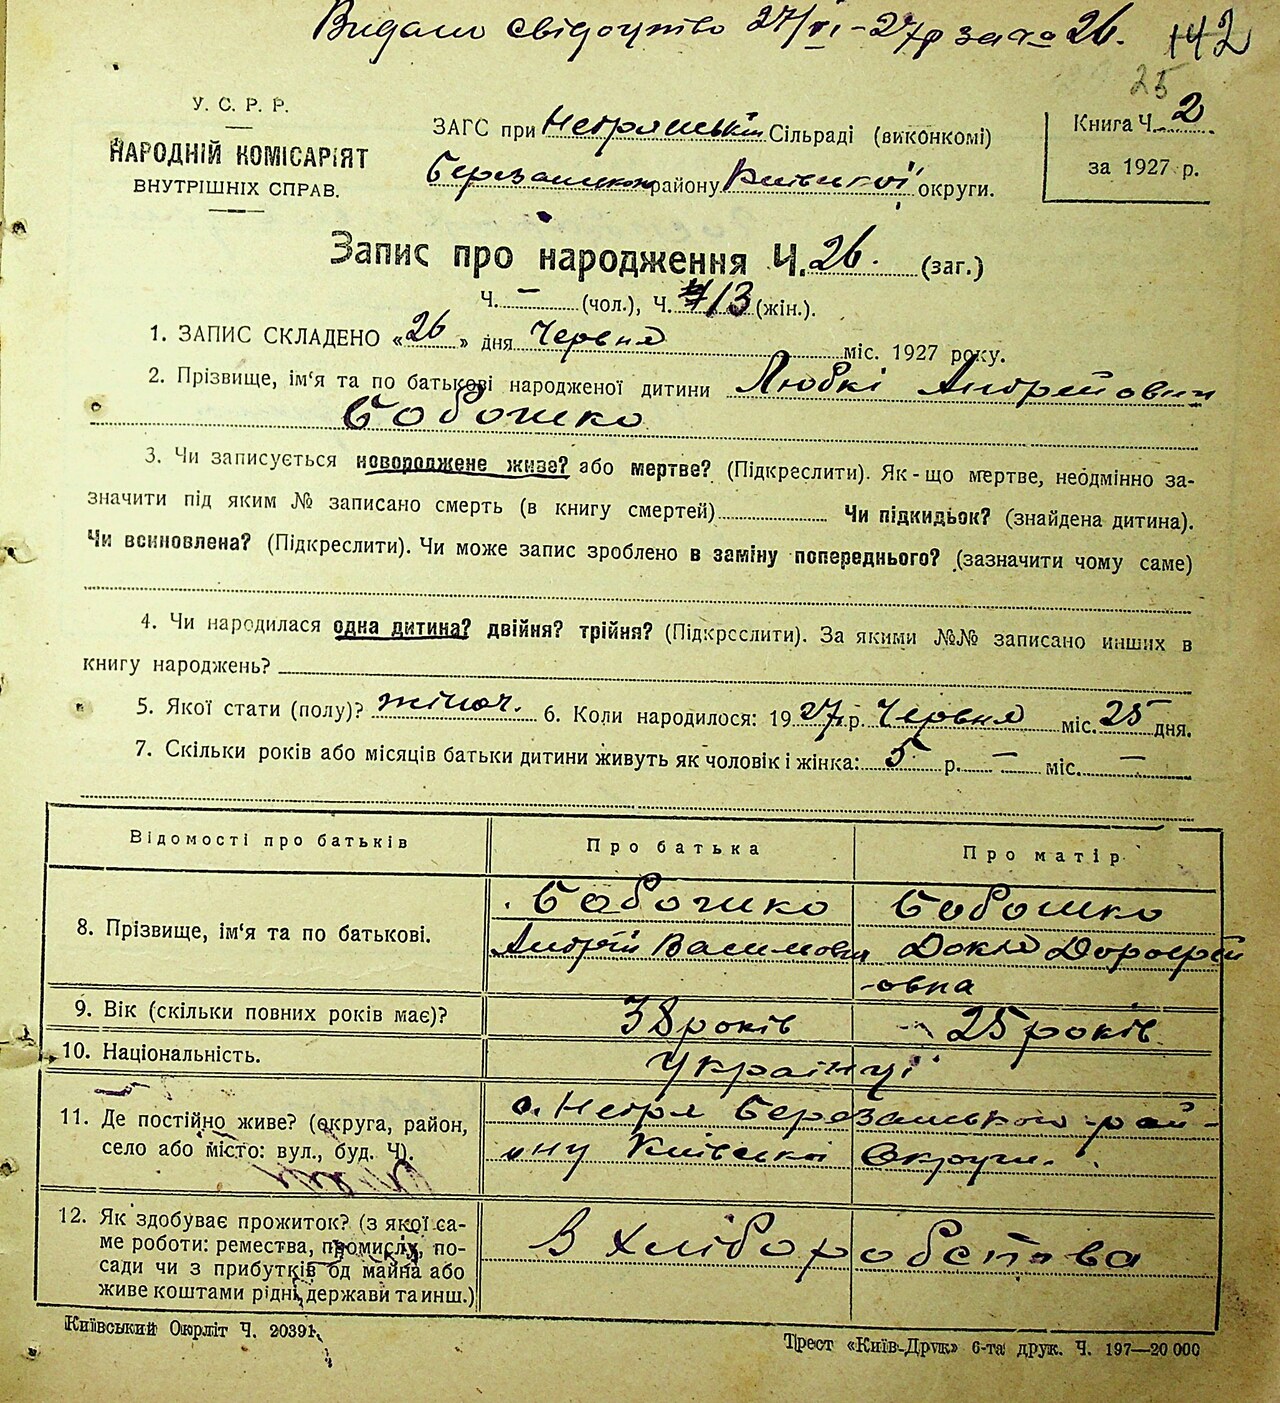 Видано свідоцтво 27/VI-27р за № 26. 142
25
У. С. Р. Р.
НАРОДНІЙ КОМІСАРІЯТ
ВНУТРІШНІХ СПРАВ.
ЗАГС при Сільраді (виконкомі)
району Київської округи.
Книга Ч. 2
за 1927 р.
Запис про народження Ч. 26. (заг.)
Ч. – (чол.), Ч. 13 (жін.).
1. ЗАПИС СКЛАДЕНО «26» дня Червня міс. 1927 року.
2. Прізвище, ім'я та по батькові народженої дитини Любкі Андрейович
Бабошко
3. Чи записується новороджене живе? або мертве? (Підкреслити). Як-що мертве, неодмінно за-
значити під яким № записано смерть (в книгу смертей) Чи підкидьок? (знайдена дитина).
Чи всиновлена? (Підкреслити). Чи може запис зроблено в заміну попереднього? (зазначити чому саме)
4. Чи народилася одна дитина? двійня? трійня? (Підкреслити). За якими №№ записано инших в
книгу народжень?
5. Якої стати (полу)? жіноч. 6. Коли народилося: 1927 р. Червня міс. 25 дня.
7. Скільки років або місяців батьки дитини живуть як чоловік і жінка: 5 р. – міс. –
Відомості про батьків Про батька Про матір
8. Прізвище, ім'я та по батькові.
Бабошко Бабошко
Андрій Дорофей
-овна
9. Вік (скільки повних років має)? 38 років 25 років
10. Національність. Українці
11. Де постійно живе? (округа, район,
село або місто: вул., буд. Ч).
с. Недря Березанського рай-
ону Київської Округи.
12. Як здобуває прожиток? (з якої са-
ме роботи: ремества, промислу, по-
сади чи з прибутків од майна або
живе коштами рідні, держави та инш.)
В Хліборобства
Київський Окрліт Ч. 20391.
Трест «Київ-Друк» 6-та друк. Ч. 197—20 000